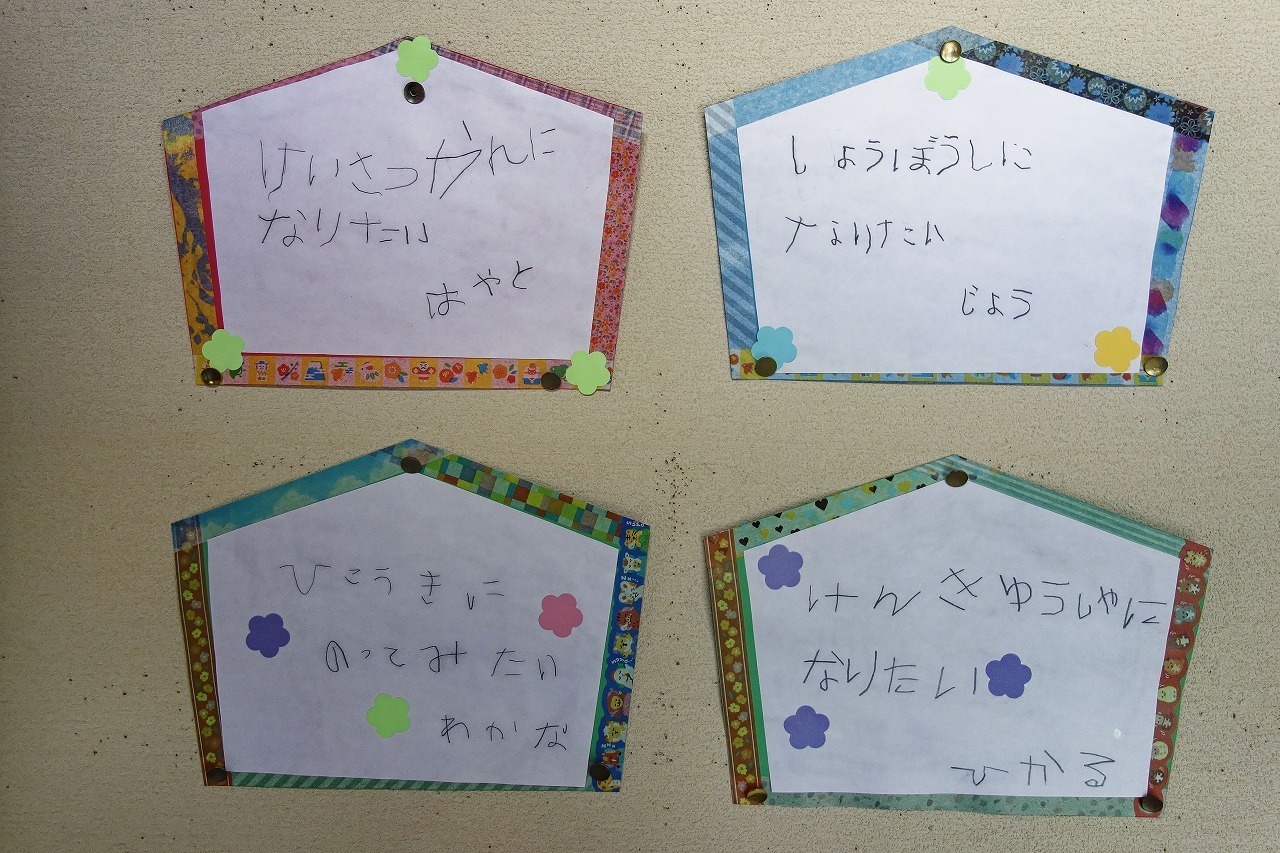 けいさつかんに
なりたい
はやと
しょうぼうしに
なりたい
じょう
ひこうきに
のってみたい
わかな
けんきゅうしゃに
なりたい
ひかる